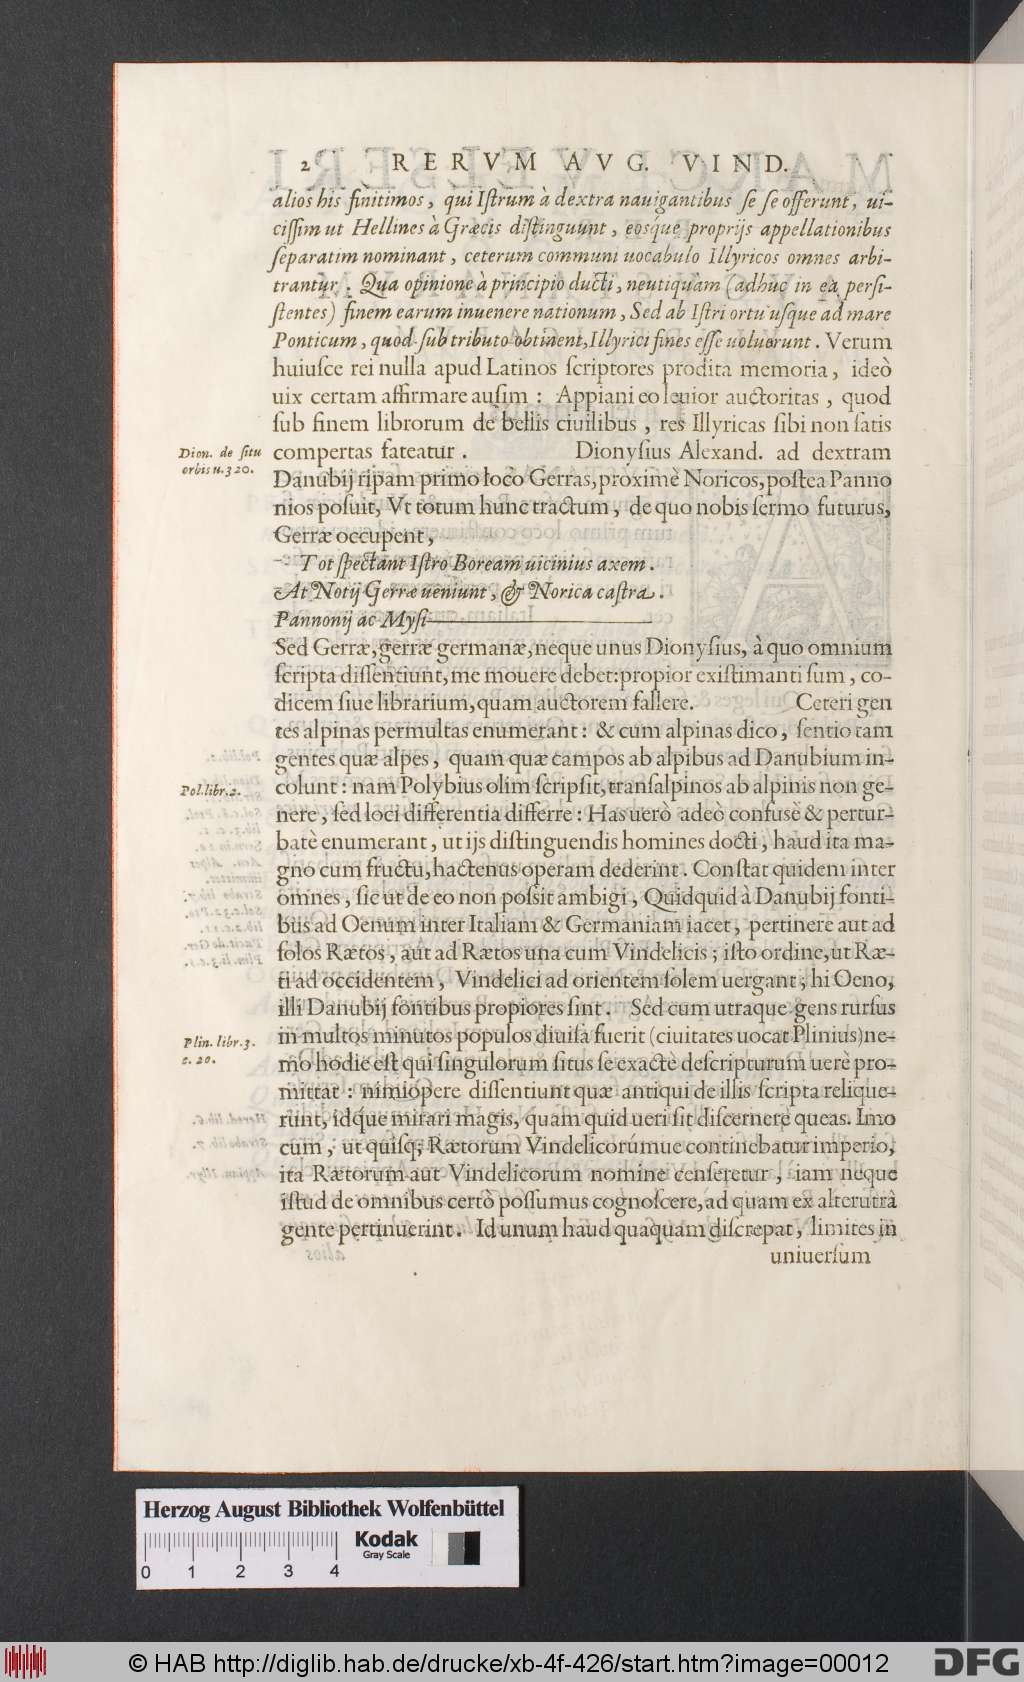 2 RERVM AVG. VIND.
alios his finitimos, qui Iſtrum à dextra nauigantibus ſe ſe offerunt, ui-
ciſſim ut Hellines à Græcis diſtinguunt, eosq́ue proprijs appellationibus
ſeparatim nominant, ceterum communi uocabulo Illyricos omnes arbi-
trantur. Qua opinione à principio ducti, neutiquàm (adhuc in ea perſi-
ſtentes) finem earum inuenere nationum, Sed ab Iſtri ortu uſque ad mare
Ponticum, quod ſub tributo obtinent, Illyrici fines eſſe uoluerunt. Verum
huiuſce rei nulla apud Latinos ſcriptores prodita memoria, ideò
uix certam affirmare auſim: Appiani eo leuior auctoritas, quod
ſub finem librorum de bellis ciuilibus, res Illyricas ſibi non ſatis
Dion. de ſitu
orbis u. 320.
compertas fateatur. Dionyſius Alexand. ad dextram
Danubij ripam primo loco Gerras, proximè Noricos, poſtea Panno
nios poſuit, Vt totum hunc tractum, de quo nobis ſermo futurus,
Gerræ occupent,
Tot ſpectant Iſtro Boream uicinius axem.
At Notij Gerræ ueniunt, & Norica caſtra.
Pannonij ac Myſi
Sed Gerræ, gerræ germanæ, neque unus Dionyſius, à quo omnium
ſcripta diſſentiunt, me mouere debet: propior exiſtimanti ſum, co-
dicem ſiue librarium, quam auctorem fallere. Ceteri gen
tes alpinas permultas enumerant: & cum alpinas dico, ſentio tam
gentes quæ alpes, quam quæ campos ab alpibus ad Danubium in-
Pol. libr. 2.
colunt: nam Polybius olim ſcripſit, tranſalpinos ab alpinis non ge-
nere, ſed loci differentia differre: Has uerò adeò confuſè & pertur-
batè enumerant, ut ijs diſtinguendis homines docti, haud ita ma-
gno cum fructu, hactenus operam dederint. Conſtat quidem inter
omnes, ſic ut de eo non poſsit ambigi, Quidquid à Danubij fonti-
bus ad Oenum inter Italiam & Germaniam iacet, pertinere aut ad
ſolos Rætos, aut ad Rætos una cum Vindelicis; iſto ordine, ut Ræ-
ti ad occidentem, Vindelici ad orientem ſolem uergant; hi Oeno,
illi Danubij fontibus propiores ſint. Sed cum utraque gens rurſus
Plin. libr. 3.
c. 20.
in multos minutos populos diuiſa fuerit (ciuitates uocat Plinius) ne-
mo hodie eſt qui ſingulorum ſitus ſe exactè deſcripturum uerè pro-
mittat: nimiopere diſſentiunt quæ antiqui de illis ſcripta relique-
runt, idque mirari magis, quam quid ueri ſit diſcernere queas. Imo
cum, ut quiſq; Rætorum Vindelicorúmue continebatur imperio,
ita Rætorum aut Vindelicorum nomine cenſeretur, iam neque
iſtud de omnibus certò poſſumus cognoſcere, ad quam ex alterutrâ
gente pertinuerint. Id unum haud quaquam diſcrepat, limites in
uniuerſum
Herzog August Bibliothek Wolfenbüttel
Kodak
Gray Scale
0 1 2 3 4
© HAB http://diglib.hab.de/drucke/xb-4f-426/start.htm?image=00012
DFG